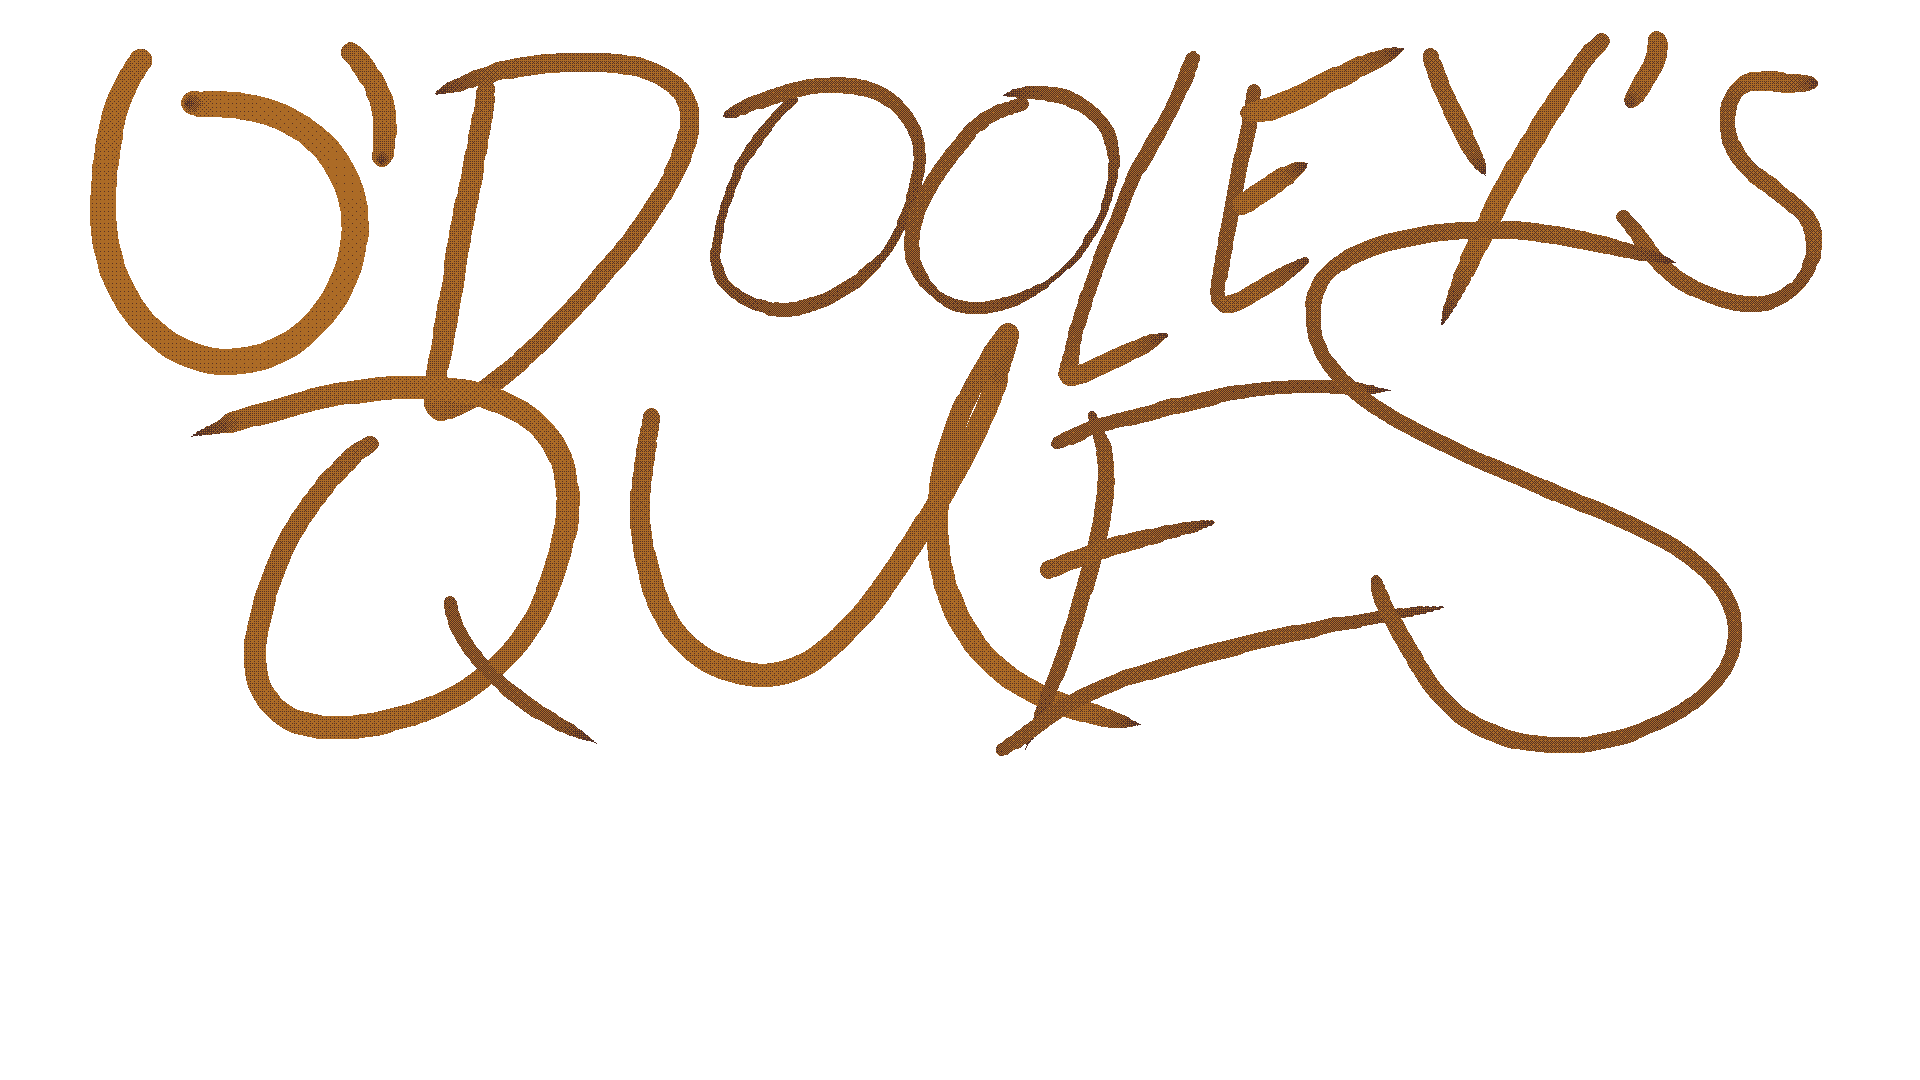 O'DOOLEY'S
QUES